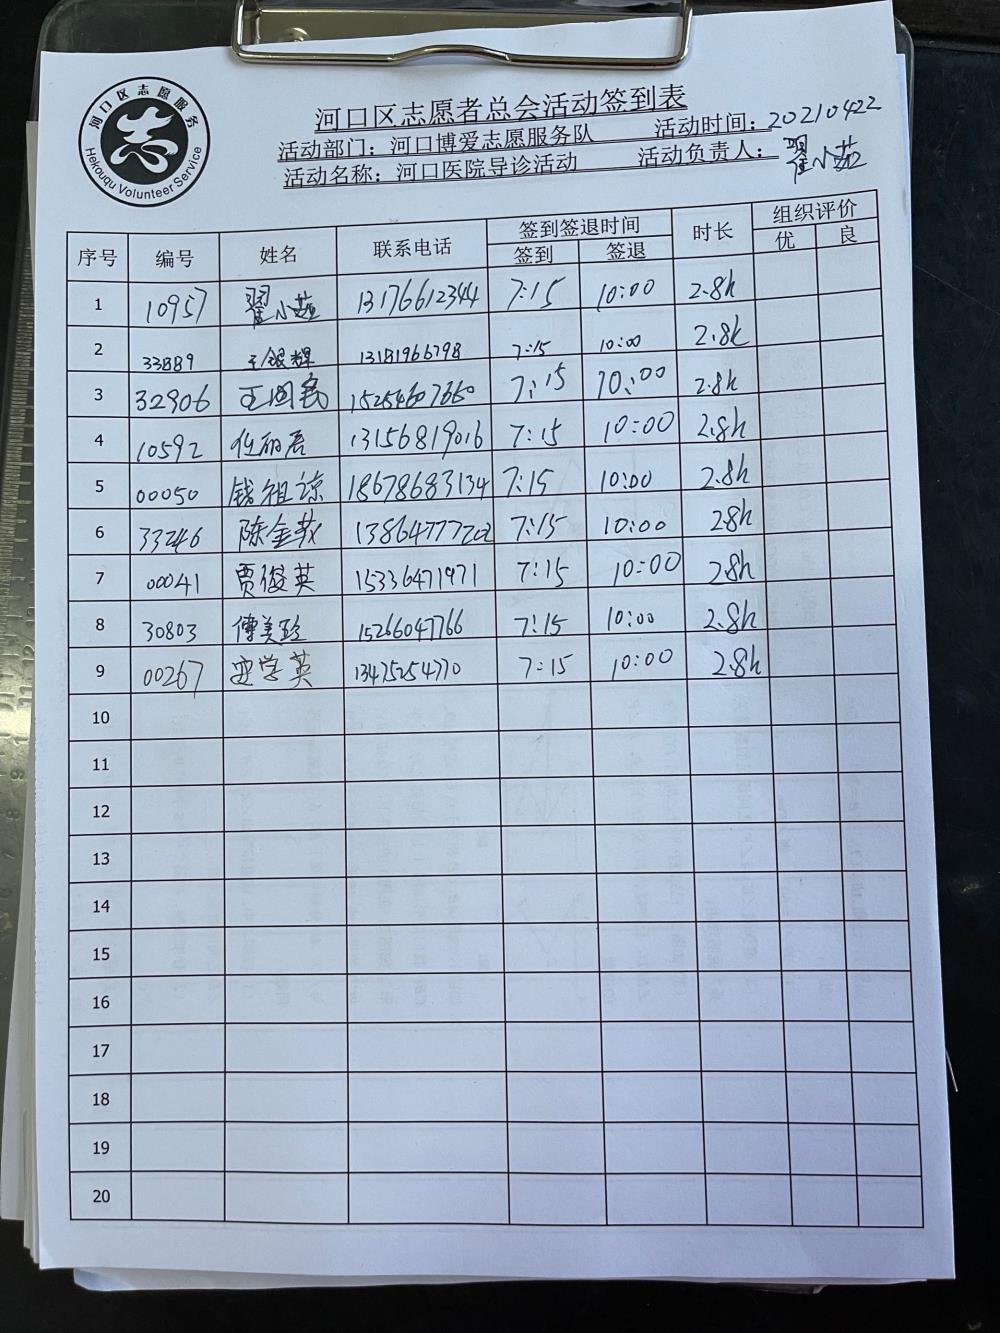 河口区志愿服务
Hekouqu Volunteer Service
河口区志愿者总会活动签到表
活动部门：河口博爱志愿服务队 活动时间：20210422
活动名称：河口医院导诊活动 活动负责人：翟小茹
序号 编号 姓名 联系电话 签到签退时间 时长 组织评价
签到 签退 优 良
1 10957 翟小茹 13176612344 7:15 10:00 2.8h
2 33889 王银辉 13181966798 7:15 10:00 2.8h
3 32906 王国民 15254607660 7:15 10:00 2.8h
4 10592 任丽君 13156819016 7:15 10:00 2.8h
5 00050 钱祖谅 18678683134 7:15 10:00 2.8h
6 33246 陈金敏 13864777202 7:15 10:00 2.8h
7 00041 贾俊英 15336471971 7:15 10:00 2.8h
8 30803 傅美珍 15266047766 7:15 10:00 2.8h
9 00267 学英 13475254770 7:15 10:00 2.8h
10
11
12
13
14
15
16
17
18
19
20